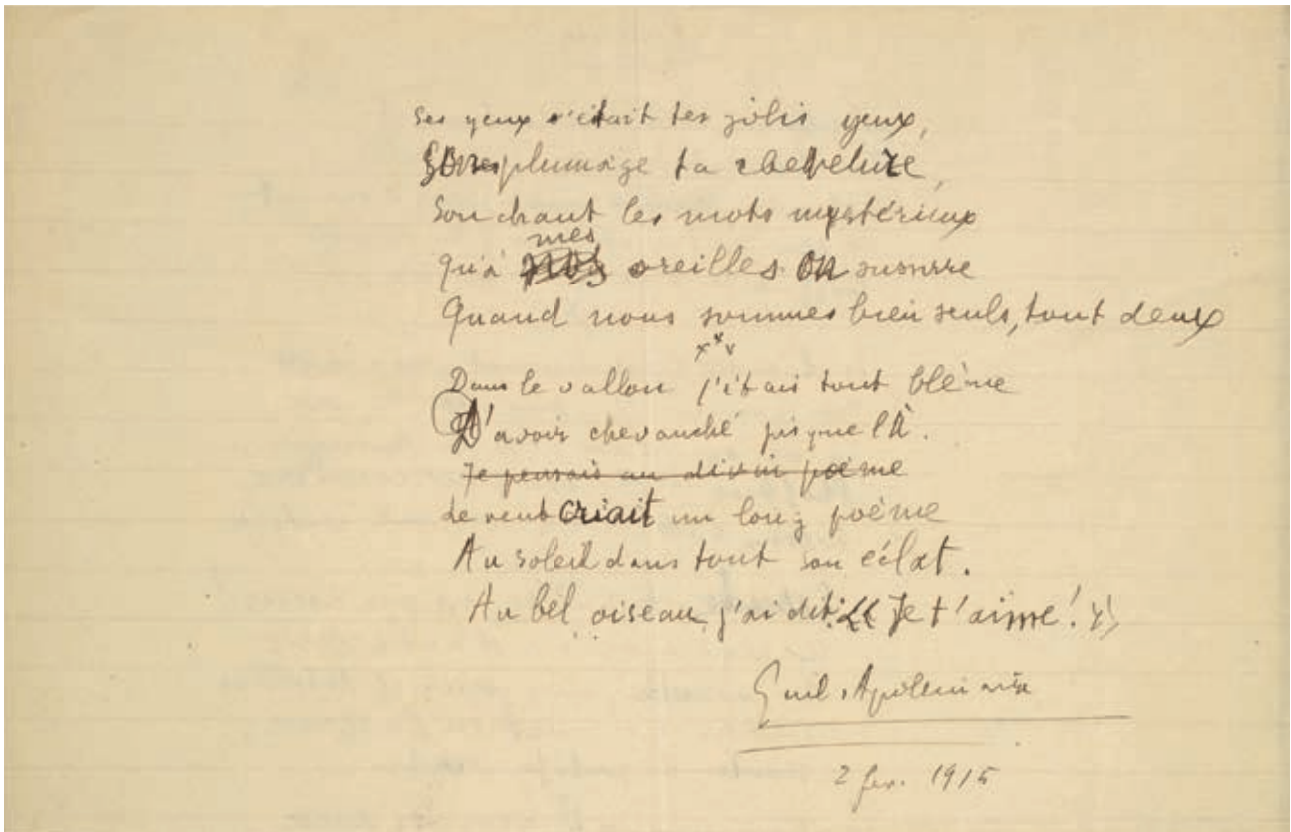 Ses yeux c'était tes jolis yeux,
Son plumage ta chevelure,
Son chant les mots mystérieux
mes
Qu'à oreilles on susurre
Quand nous sommes bien seuls, tout deux
***
Dans le vallon j'étais tout blême
D'avoir chevauché jusque là.
Je pensais au divin poème
Le vent criait un long poème
Au soleil dans tout son éclat.
Au bel oiseau j'ai dit : « Je t'aime ! »
Guil. Apollinaire
2 fev. 1915